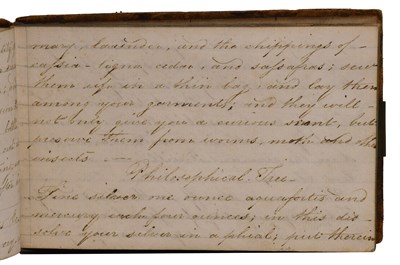 mary, lavender, and the chippings of
cassia-ligna cedar, and sassafras; sew
them up in a thin bag, and lay them
among your garments, and they will
not only give you a curious scent, but
preserve them from worms, moths and other
insects. —
Philosophical Tree
Fine silver one ounce aquafortis and
mercury each four ounces; in this dis-
solve your silver in a phial; put therein